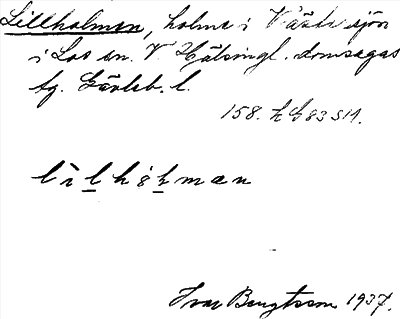 Lillholmen, holme i Västersjön
i Los sn. V. Hälsingl. domsagas
tg. Gävleb. l.
158. h G 83 S 11.
Ivar Bengtsson 1937.